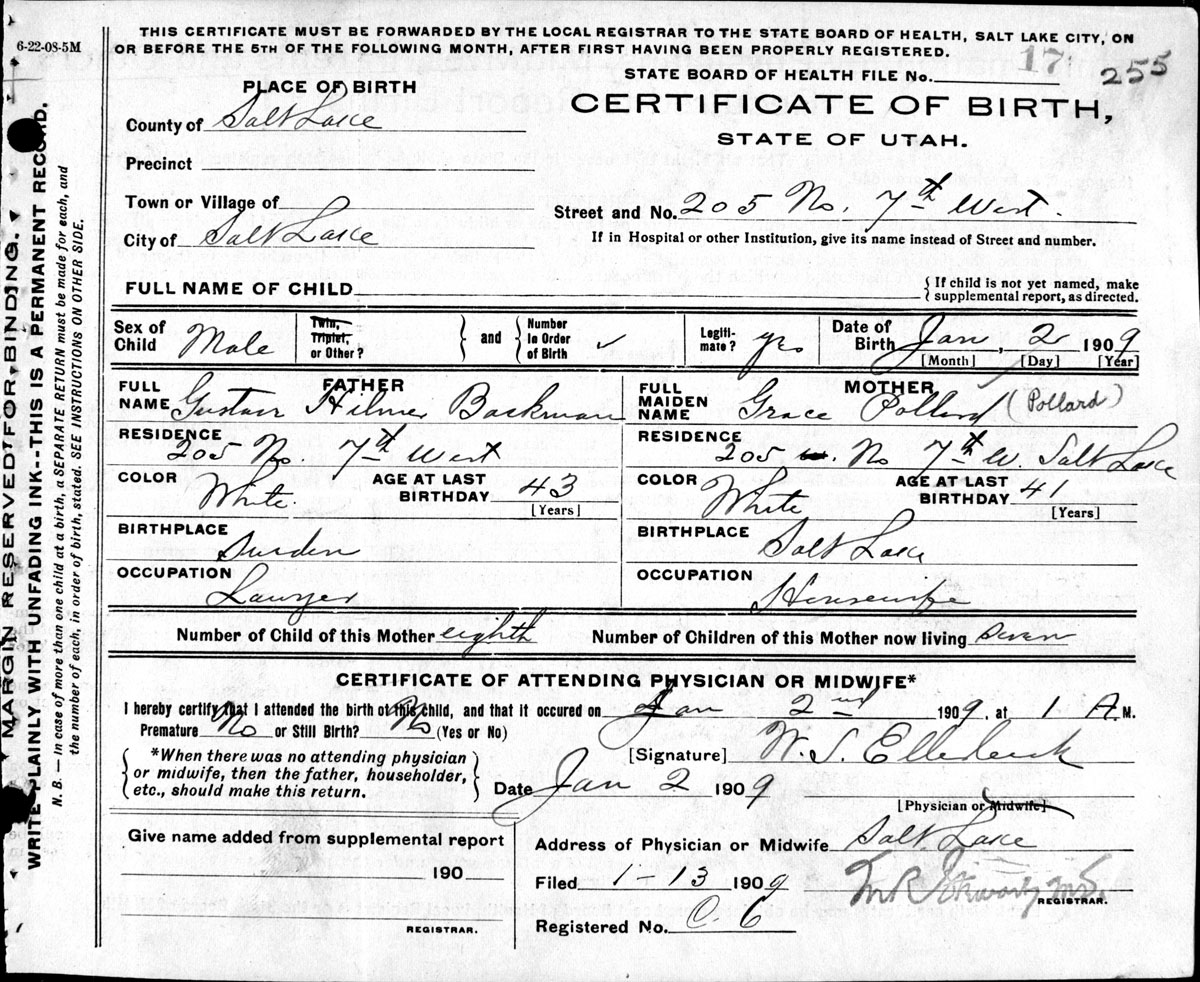 6-22-08-5M
THIS CERTIFICATE MUST BE FORWARDED BY THE LOCAL REGISTRAR TO THE STATE BOARD OF HEALTH, SALT LAKE CITY, ON
OR BEFORE THE 5TH OF THE FOLLOWING MONTH, AFTER FIRST HAVING BEEN PROPERLY REGISTERED.
STATE BOARD OF HEALTH FILE No. 17 255
PLACE OF BIRTH
CERTIFICATE OF BIRTH,
STATE OF UTAH.
County of Salt Lake
Precinct
Town or Village of
Street and No. 205 No. 7th West.
City of Salt Lake
If in Hospital or other Institution, give its name instead of Street and number.
FULL NAME OF CHILD
{If child is not yet named, make
supplemental report, as directed.
Sex of Child Male
Twin, Triplet, or Other?
and
Number in Order of Birth ✓
Legiti-mate? yes
Date of Birth Jan, 2 1909
[Month] [Day] [Year]
FATHER
FULL NAME Gustave Hilmer Backman
MOTHER
FULL MAIDEN NAME Grace Pollard (Pollard)
RESIDENCE 205 No. 7th West
RESIDENCE 205 No 7th W. Salt Lake
COLOR White
AGE AT LAST BIRTHDAY 43 [Years]
COLOR White
AGE AT LAST BIRTHDAY 41 [Years]
BIRTHPLACE Sweden
BIRTHPLACE Salt Lake
OCCUPATION Lawyer
OCCUPATION Housewife
Number of Child of this Mother eighth Number of Children of this Mother now living seven
CERTIFICATE OF ATTENDING PHYSICIAN OR MIDWIFE*
I hereby certify that I attended the birth of this child, and that it occured on Jan 2nd 1909, at 1 A.M.
Premature No or Still Birth? No (Yes or No)
[Signature] W. S. Ellerbeck
{*When there was no attending physician
or midwife, then the father, householder,
etc., should make this return.}
Date Jan 2 1909
[Physician or Midwife]
Give name added from supplemental report
190
REGISTRAR.
Address of Physician or Midwife Salt Lake
Filed 1-13 1909
REGISTRAR.
Registered No. C. 6
MARGIN RESERVED FOR BINDING.
WRITE PLAINLY WITH UNFADING INK--THIS IS A PERMANENT RECORD.
N. B. — In case of more than one child at a birth, a SEPARATE RETURN must be made for each, and
the number of each, in order of birth, stated. SEE INSTRUCTIONS ON OTHER SIDE.